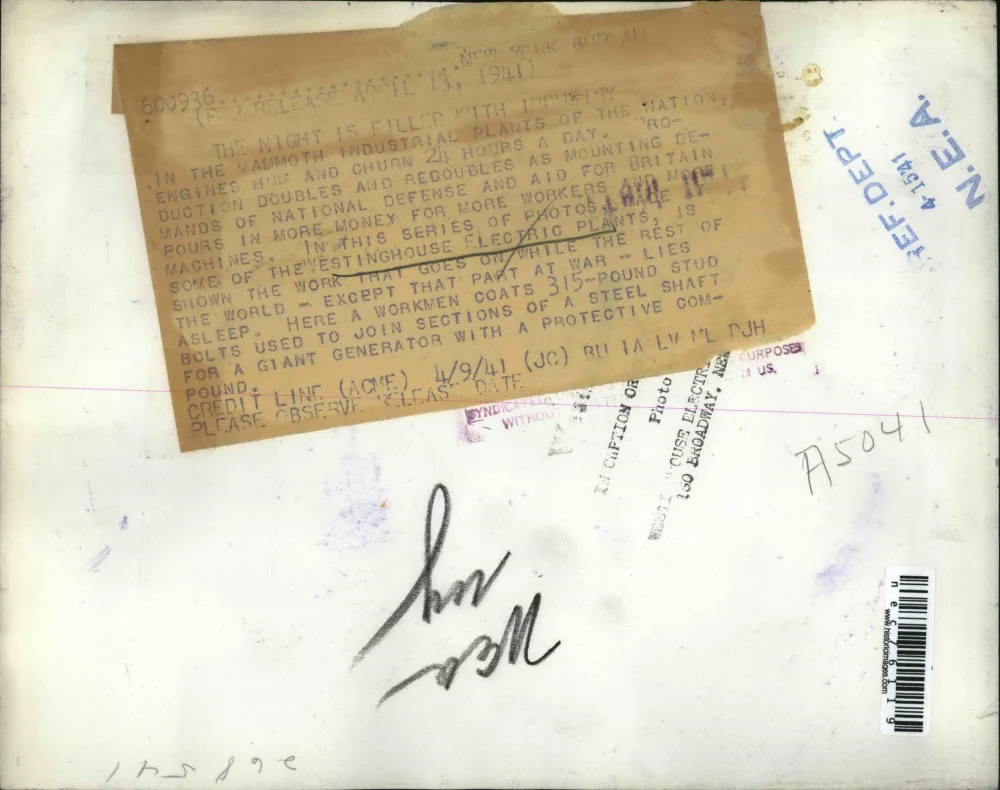 NEW YORK BUREAU
600936
(FOR RELEASE APRIL 13, 1941)
THE NIGHT IS FILLED WITH INDUSTRY
IN THE MAMMOTH INDUSTRIAL PLANTS OF THE NATION,
ENGINES HUM AND CHURN 24 HOURS A DAY. PRO-
DUCTION DOUBLES AND REDOUBLES AS MOUNTING DE-
MANDS OF NATIONAL DEFENSE AND AID FOR BRITAIN
POURS IN MORE MONEY FOR MORE WORKERS AND MORE
MACHINES. IN THIS SERIES OF PHOTOS, MADE
SOME OF THE WESTINGHOUSE ELECTRIC PLANTS, IS
SHOWN THE WORK THAT GOES ON WHILE THE REST OF
THE WORLD - EXCEPT THAT PART AT WAR - LIES
ASLEEP. HERE A WORKMEN COATS 315-POUND STUD
BOLTS USED TO JOIN SECTIONS OF A STEEL SHAFT
FOR A GIANT GENERATOR WITH A PROTECTIVE COM-
POUND.
CREDIT LINE (ACME) 4/9/41 (JC) BU IA LV ML DJH
PLEASE OBSERVE RELEASE DATE
REF. DEPT.
4 1541
N.E.A.
SYNDICATE
WITHOUT
PURPOSES
US.
IN CAPTION OR
Photo
WESTINGHOUSE ELECTR
150 BROADWAY, NEW
A5041
necz61119
www.historicimages.com